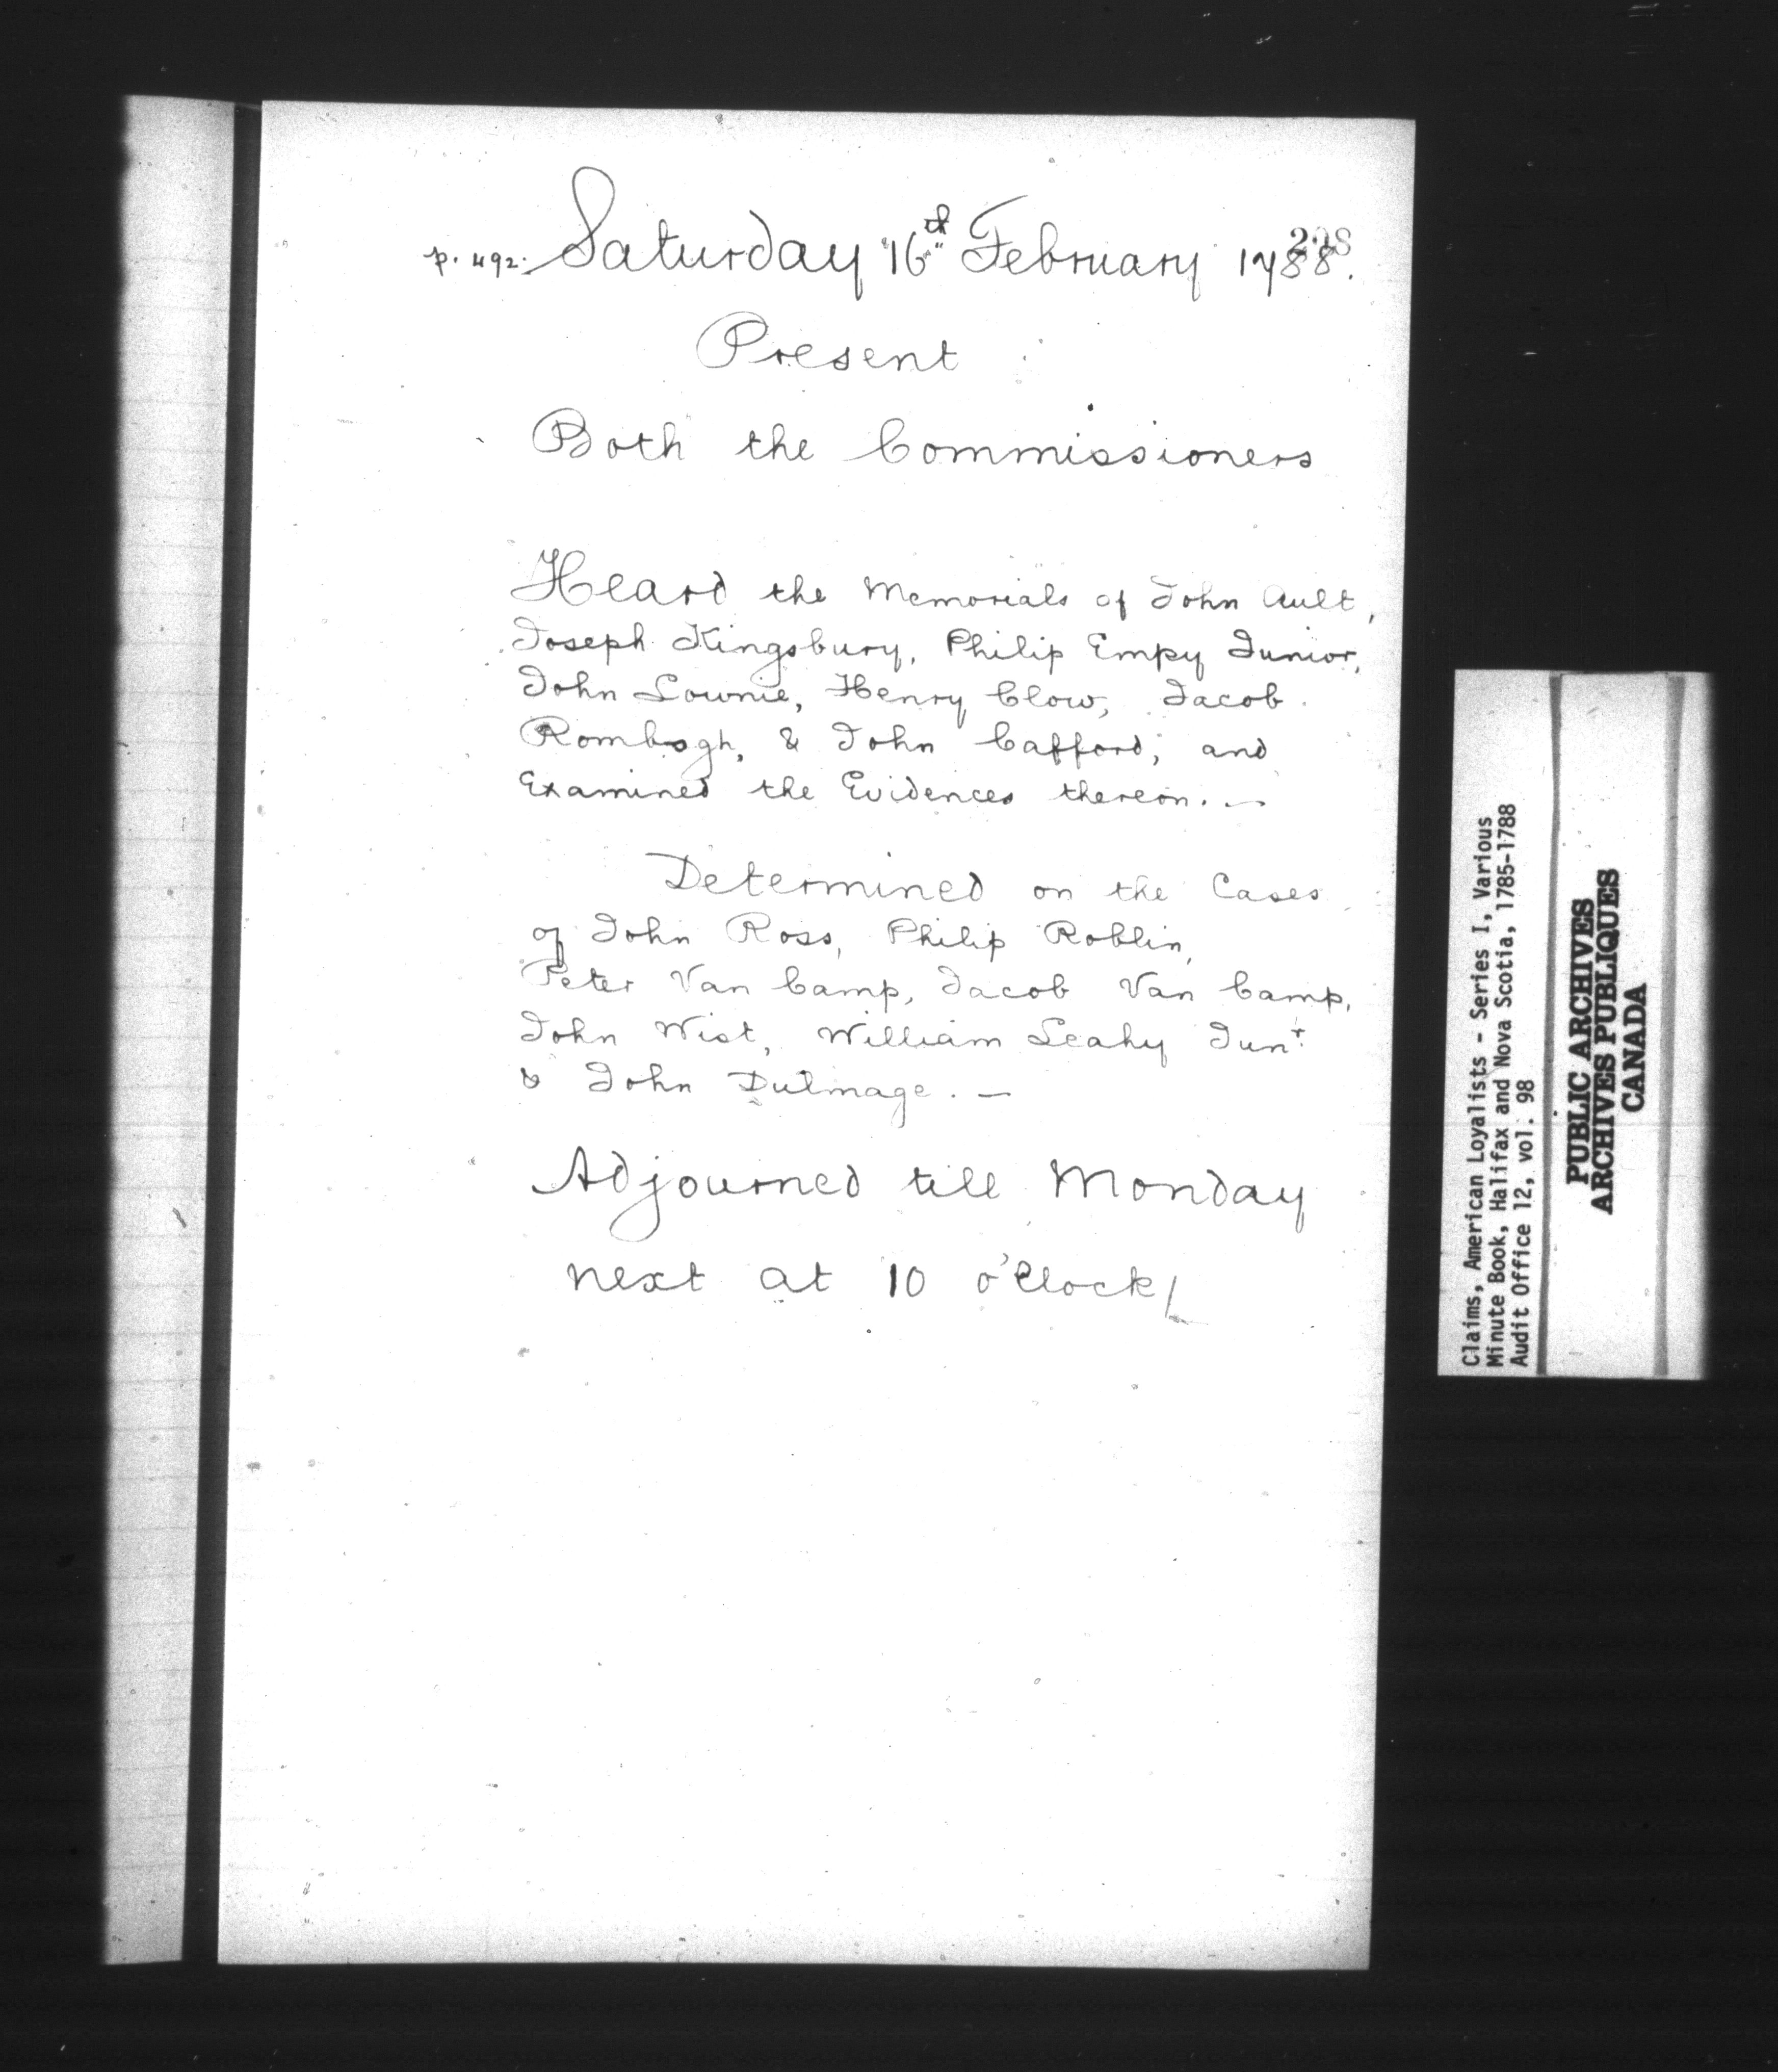 208
p. 492. Saturday 16th February 1788.
Present
Both the Commissioners
Heard the Memorials of John Ault,
Joseph Kingsbury, Philip Empy Junior,
John Lownie, Henry Clow, Jacob
Rombogh, & John Cafford; and
Examined the Evidences thereon. —
Determined on the Cases
of John Ross, Philip Roblin,
Peter Van Camp, Jacob Van Camp,
John Wist, William Leahy Junr
& John Dulmage. —
Adjourned till Monday
next at 10 o'Clock/
Claims, American Loyalists - Series I, Various
Minute Book, Halifax and Nova Scotia, 1785-1788
Audit Office 12, vol. 98
PUBLIC ARCHIVES
ARCHIVES PUBLIQUES
CANADA